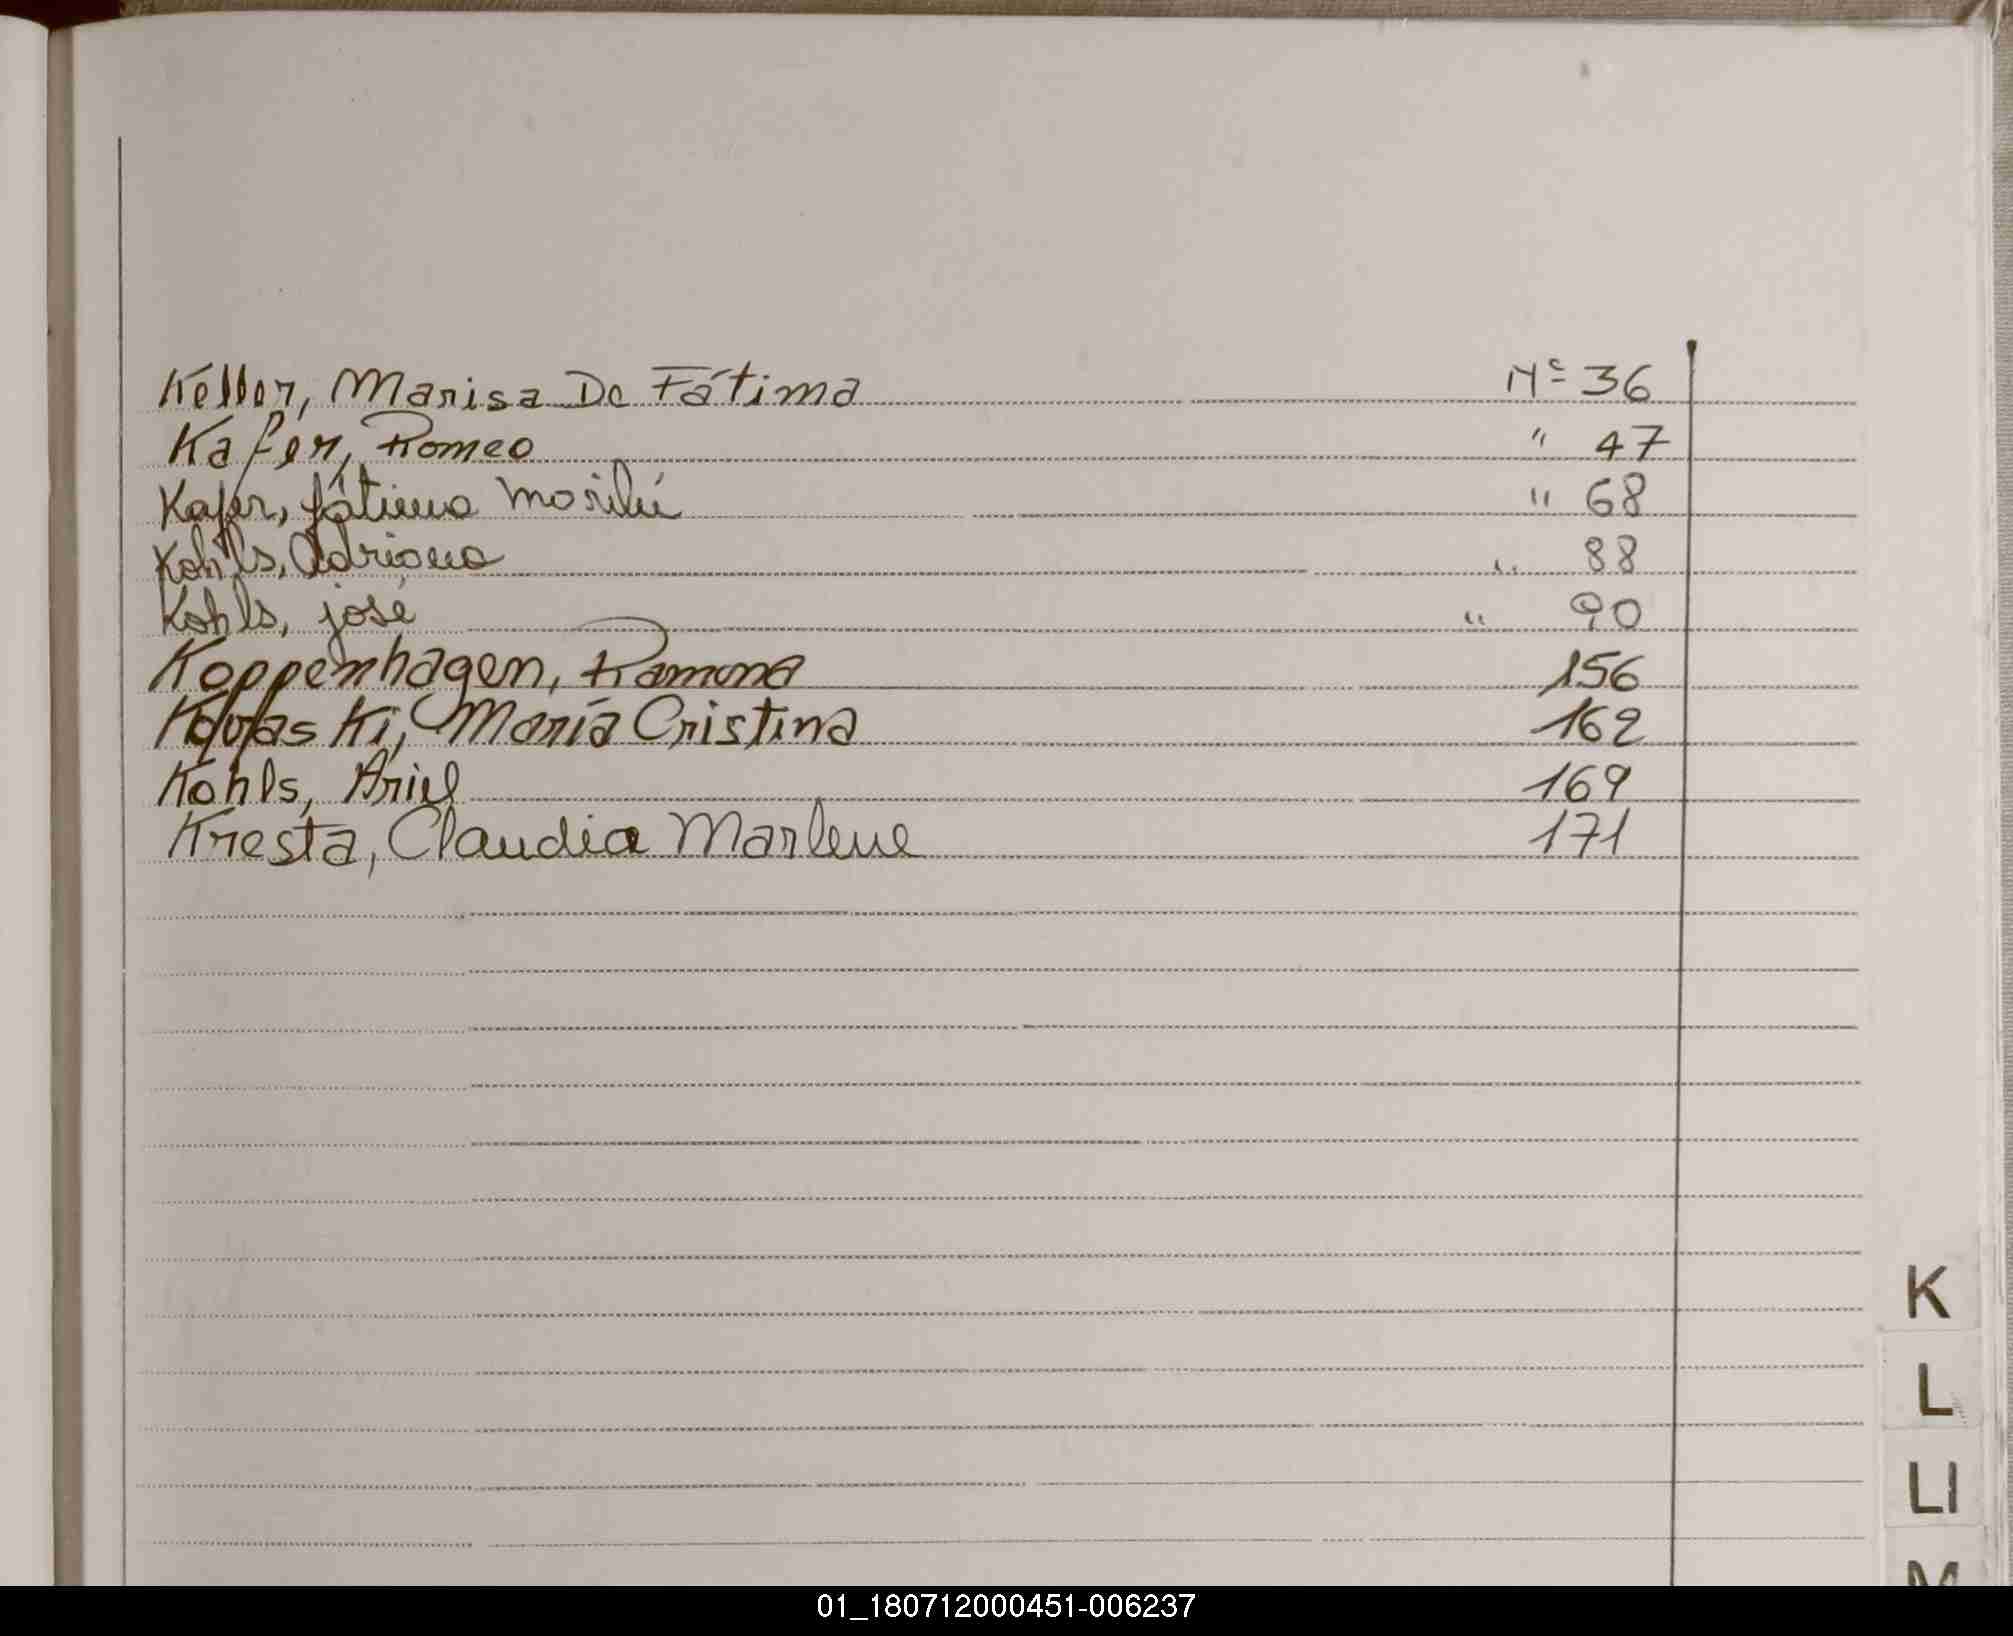 Keller, Marisa De Fátima Nº 36
Kafer, Romeo " 47
Kafer, fátima Marilú " 68
Kohls, Adriana " 88
Kohls, josé " 90
Koppenhagen, Ramona 156
María Cristina 162
Kohls, Ariel 169
Kresta, Claudia Marlene 171
K
L
Ll
M
01_180712000451-006237